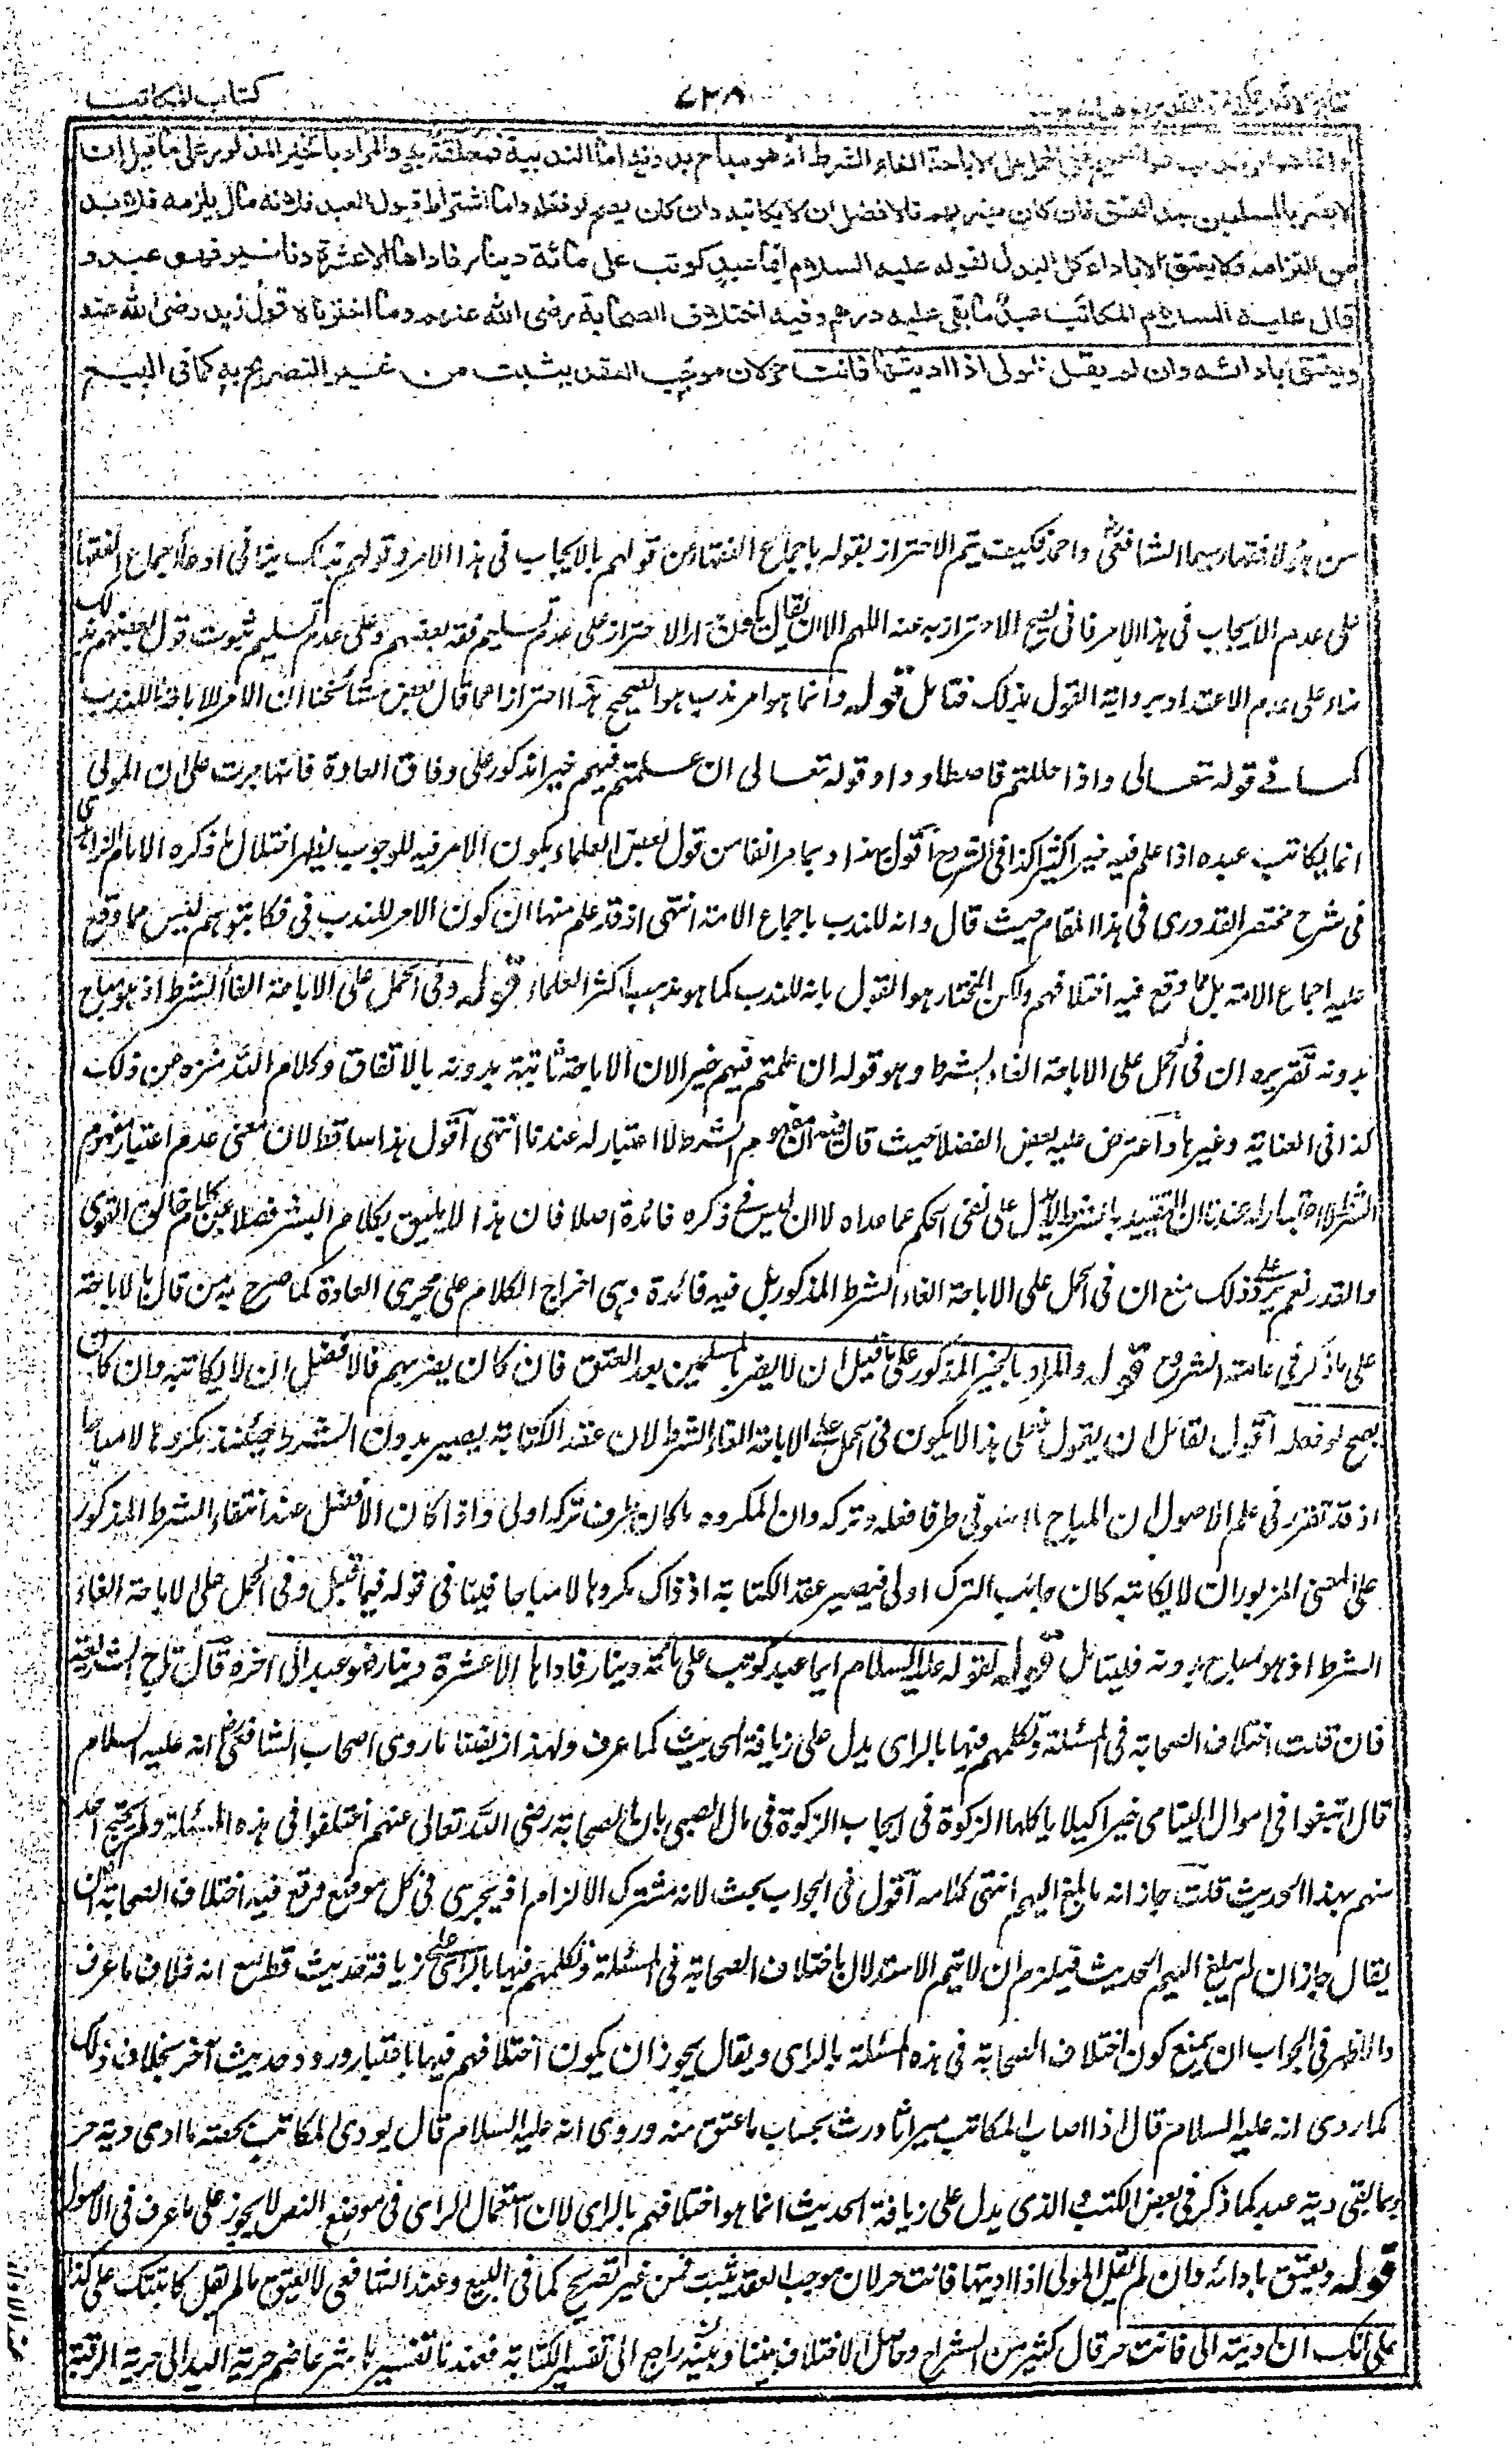 كتاب المكاتب
٤٣٨
هو الصحيح ففي الحمل على الاباحة الغاء الشرط اذ هو مباح بدونه اما الندبية فمعلقة به والمراد بالخير المذكور على ما قيل ان
لا يضر بالمسلمين بعد العتق فان كان يضر بهم فالافضل ان لا يكاتبه وان كان يصح لو فعله واما اشتراط قبول العبد فلانه مال يلزمه فلا بد
من التزامه ولا يعتق الا باداء كل البدل لقوله عليه السلام ايما عبد كوتب على مائة دينار فاداها الا عشرة دنانير فهو عبد و
قال عليه السلام المكاتب عبد ما بقي عليه درهم وفيه اختلاف الصحابة رضى الله عنهم وما اخترناه قول زيد رضى الله عنه
ويعتق بادائه وان لم يقل المولى اذا اديتها فانت حر لان موجب العقد يثبت من غير التصريح به كما فى البيع
من هؤلاء فقهاء سيما الشافعى واحمد فكيف يتم الاحتراز بقوله باجماع الفقهاء عن قولهم بالايجاب فى هذا الامر وقولهم بذلك ينافى ادعاء اجماع الفقهاء
على عدم الايجاب فى هذا الامر فانى يصح الاحتراز به عنه اللهم الا ان يقال يكون مدار الاحتراز على عدم تسليم فقه بعضهم وعلى عدم تسليم ثبوت قول بعضهم بذلك
بناء على عدم الاعتداد برواية القول بذلك فتامل قوله وانما هو امر ندب هو الصحيح هذا احتراز عما قال بعض مشائخنا ان الامر للاباحة لا للندب
كما فى قوله تعالى واذا حللتم فاصطادوا وقوله تعالى ان علمتم فيهم خيرا مذكور على وفاق العادة فانها جرت على ان المولى
انما يكاتب عبده اذا علم فيه خيرا كذا فى الشروح اقول بهذا وبما مر انفا من قول بعض العلماء بكون الامر فيه للوجوب يظهر اختلال ما ذكره الامام الزاهدى
فى شرح مختصر القدورى فى هذا المقام حيث قال وانه للندب باجماع الامة انتهى اذ قد علم منها ان كون الامر للندب فى فكاتبوهم ليس مما وقع
عليه اجماع الامة بل مما وقع فيه اختلافهم ولكن المختار هو القول بانه للندب كما هو مذهب اكثر العلماء قوله وفى الحمل على الاباحة الغاء الشرط اذ هو مباح
بدونه تقريره ان فى الحمل على الاباحة الغاء الشرط وهو قوله ان علمتم فيهم خيرا لان الاباحة ثابتة بدونه بالاتفاق وكلام الله منزه عن ذلك
كذا فى العناية وغيرها واعترض عليه بعض الفضلاء حيث قال فيه ان مفهوم الشرط لا اعتبار له عندنا انتهى اقول هذا ساقط لان معنى عدم اعتبار مفهوم
الشرط لا اعتبار له عندنا ان التقييد بالشرط لا يدل على نفى الحكم عما عداه لا ان ليس فى ذكره فائدة اصلا فان هذا لا يليق بكلام البشر فضلا عن كلام خالق القوى
والقدر نعم يرد على ذلك منع ان فى الحمل على الاباحة الغاء الشرط المذكور بل فيه فائدة وهى اخراج الكلام على مجرى العادة كما صرح به من قال بالاباحة
على ما ذكر فى عامة الشروح قوله والمراد بالخير المذكور على ما قيل ان لا يضر بالمسلمين بعد العتق فان كان يضر بهم فالافضل ان لا يكاتبه وان كان
يصح لو فعله اقول لقائل ان يقول فعلى هذا لا يكون فى الحمل على الاباحة الغاء الشرط لان عقد الكتابة يصير بدون الشرط حينئذ مكروها لا مباحا
اذ قد تقرر فى علم الاصول ان المباح ما استوى طرفا فعله وتركه وان المكروه ما كان طرف تركه اولى واذا كان الافضل عند انتفاء الشرط المذكور
على المعنى المزبور ان لا يكاتبه كان جانب الترك اولى فيصير عقد الكتابة اذ ذاك مكروها لا مباحا فينافى قوله فيما قبل وفى الحمل على الاباحة الغاء
الشرط اذ هو مباح بدونه فليتامل قوله لقوله عليه السلام ايما عبد كوتب على مائة دينار فاداها الا عشرة دينار فهو عبد الى اخره قال تاج الشريعة
فان قلت اختلاف الصحابة فى المسئلة وتكلمهم فيها بالراى يدل على زيافة الحديث كما عرف ولهذا زيفنا ما روى اصحاب الشافعى انه عليه السلام
قال ابتغوا فى اموال اليتامى خيرا كيلا ياكلها الزكوة فى ايجاب الزكوة فى مال الصبى بان الصحابة رضى الله تعالى عنهم اختلفوا فى هذه المسئلة ولم يحتج احد
منهم بهذا الحديث قلت جاز انه ما بلغ اليهم انتهى كلامه اقول فى الجواب بحث لانه مشترك الالزام اذ يجرى فى كل موضع وقع فيه اختلاف الصحابة ان
يقال جاز ان لم يبلغ اليهم الحديث فيلزم ان لا يتم الاستدلال باختلاف الصحابة فى المسئلة وتكلمهم فيها بالراى على زيافة حديث قط مع انه خلاف ما عرف
والاظهر فى الجواب ان يمنع كون اختلاف الصحابة فى هذه المسئلة بالراى ويقال يجوز ان يكون اختلافهم فيها باعتبار ورود حديث آخر بخلاف ذلك
كما روى انه عليه السلام قال اذا اصاب المكاتب ميراثا ورث بحساب ما عتق منه وروى انه عليه السلام قال يودى المكاتب بحصته ما ادى دية حر
وما بقى دية عبد كما ذكر فى بعض الكتب والذى يدل على زيافة الحديث انما هو اختلافهم بالراى لان استعمال الراى فى موضع النص لا يجوز على ما عرف فى الاصول
قوله ويعتق بادائه وان لم يقل المولى اذا اديتها فانت حر لان موجب العقد يثبت من غير تصريح كما فى البيع وعند الشافعى لا يعتق ما لم يقل كاتبتك على كذا
على انك ان اديته الى فانت حر قال كثير من الشراح وحاصل الاختلاف بيننا وبينه راجع الى تفسير الكتابة فعندنا تفسيرها شرعا ضم حرية اليد الى حرية الرقبة